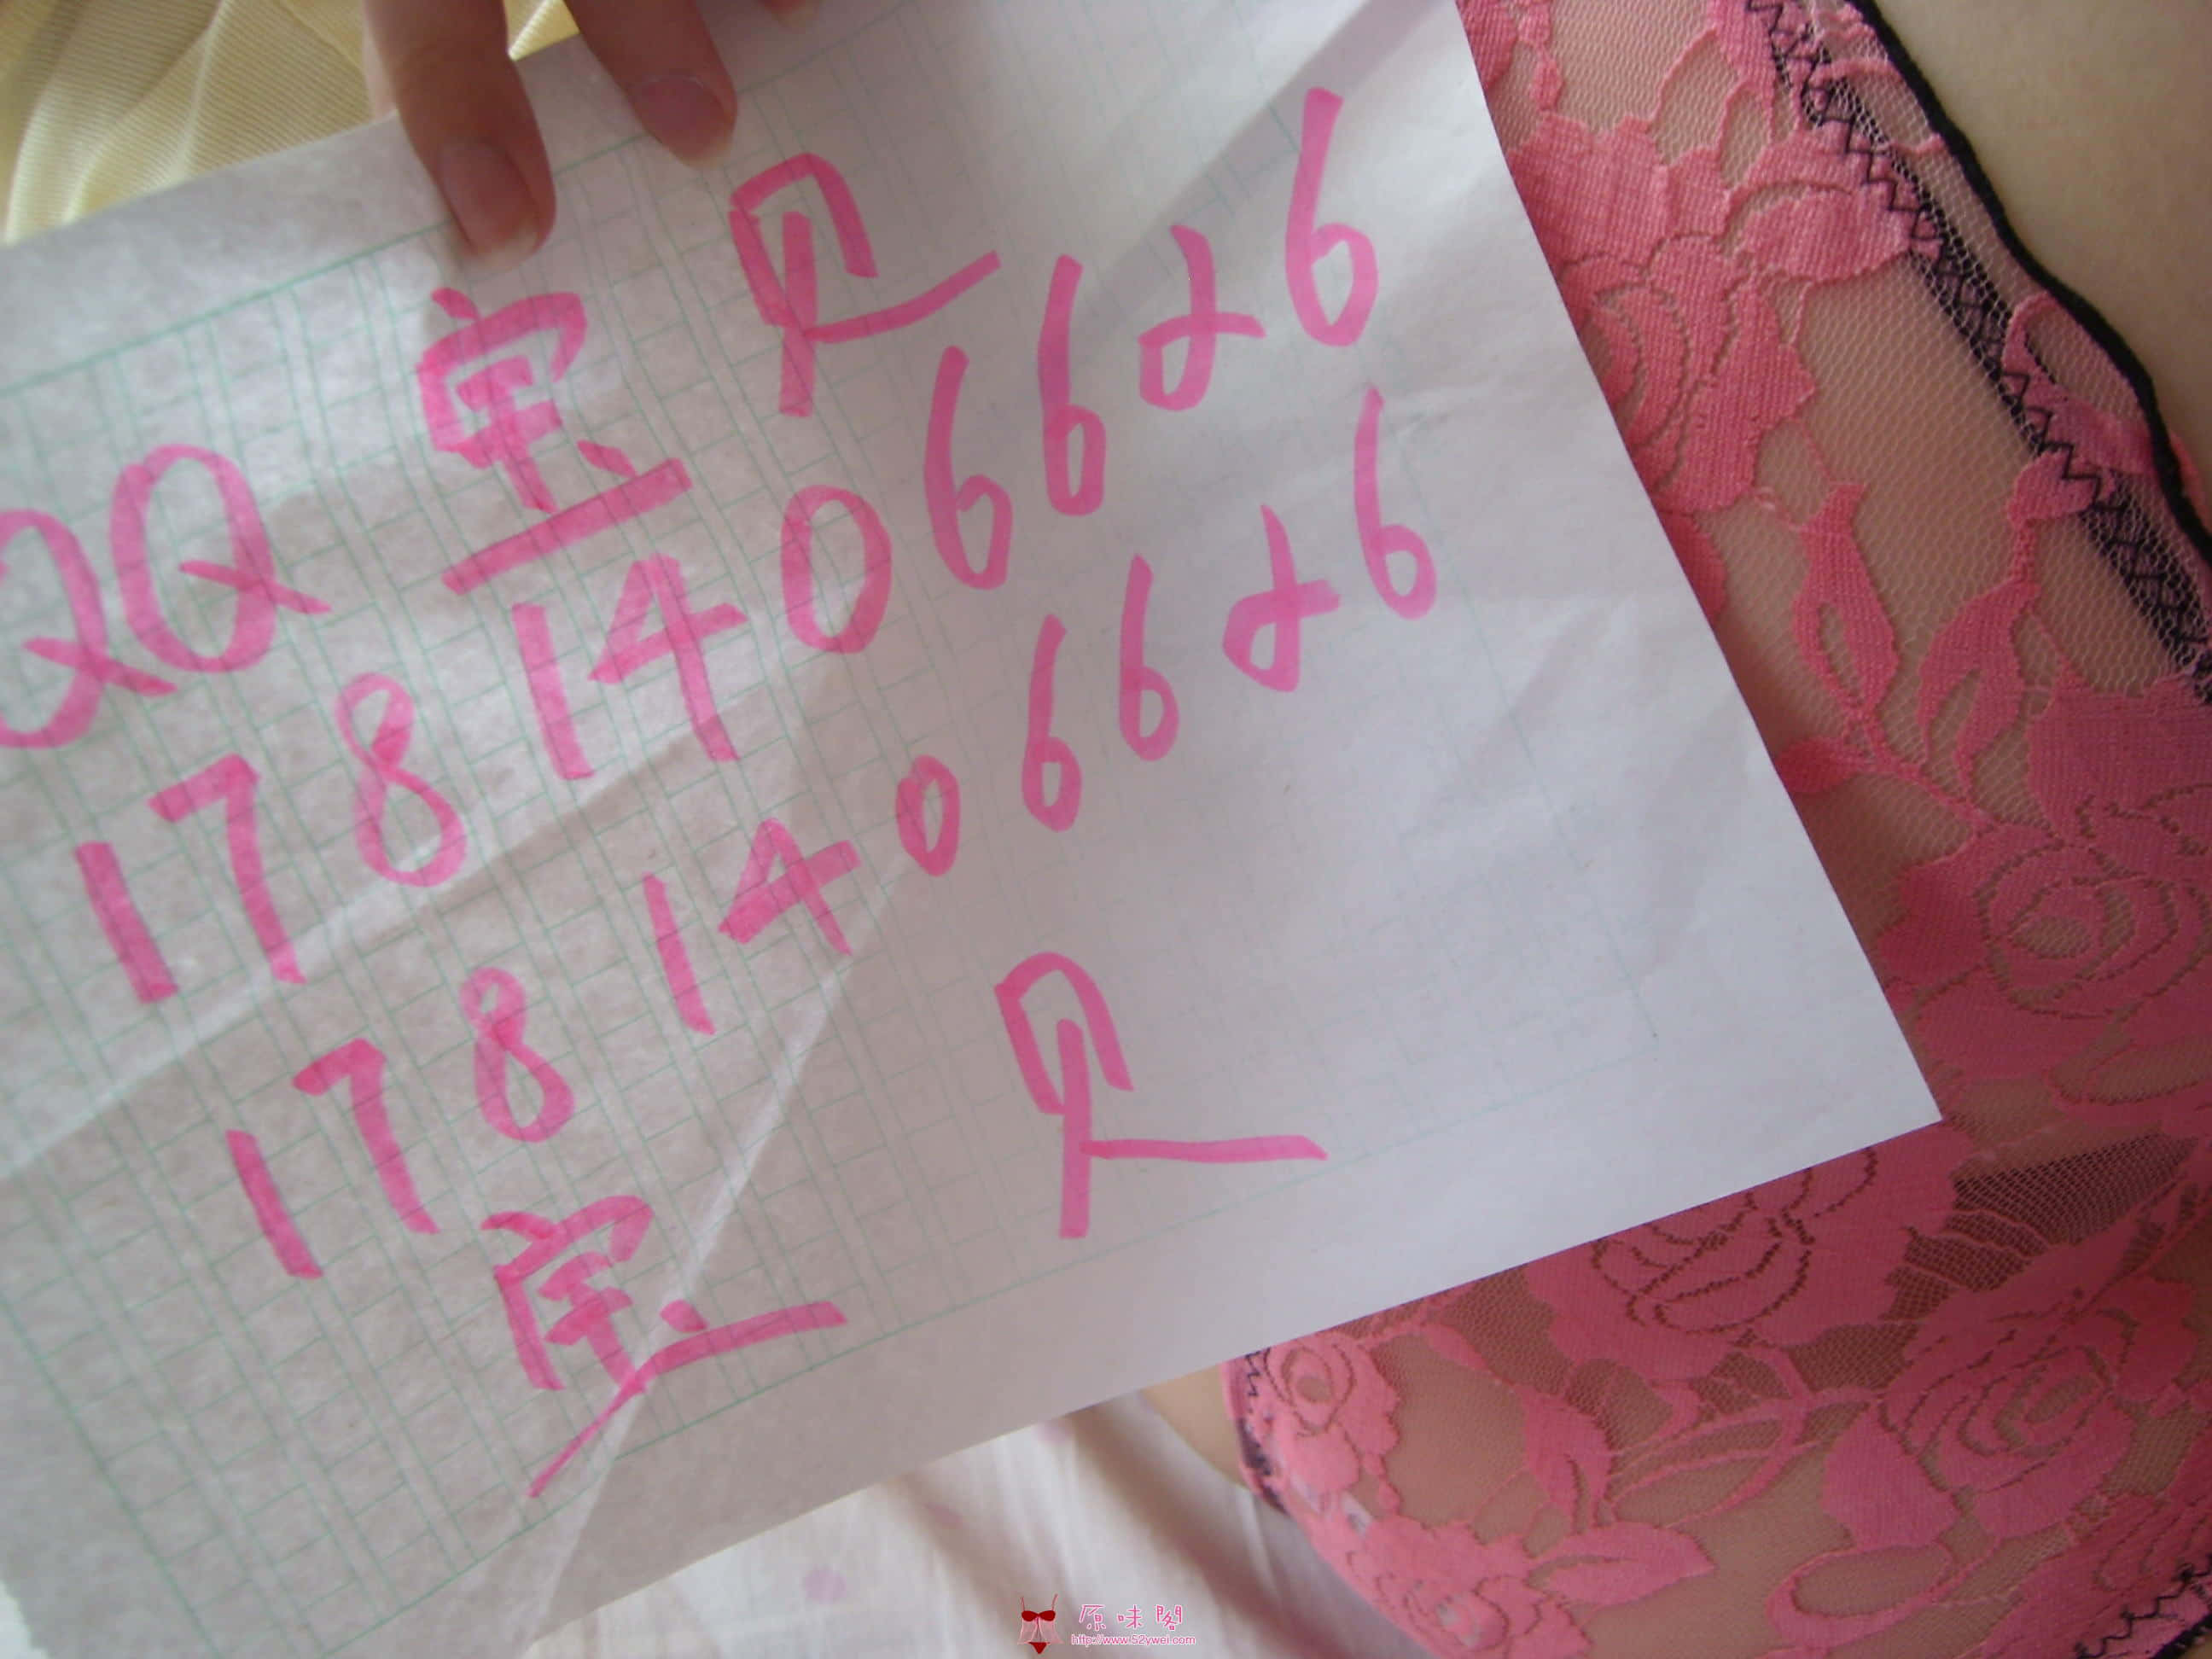 QQ 宝贝
1781406626
1781406626
宝贝
原味閣
http://www.52ywei.com